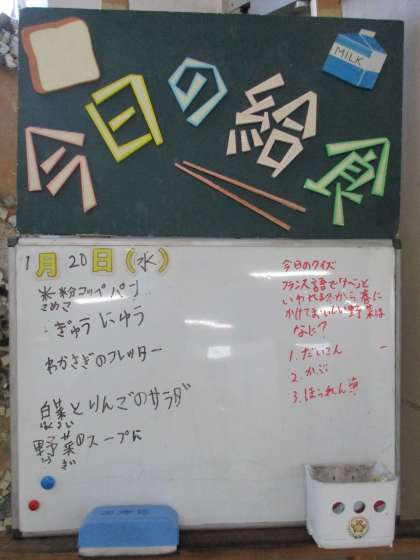 今日の給食
MILK
1月20日(水)
米粉コッペパン
こめこ
ぎゅうにゅう
わかさぎのフレッター
白菜とりんごのサラダ
野菜のスープに
今日のクイズ
フランス語で「ナベ」と
いわれる冬から春に
かけておいしい野菜は
なに?
1. だいこん
2. かぶ
3. ほうれん草